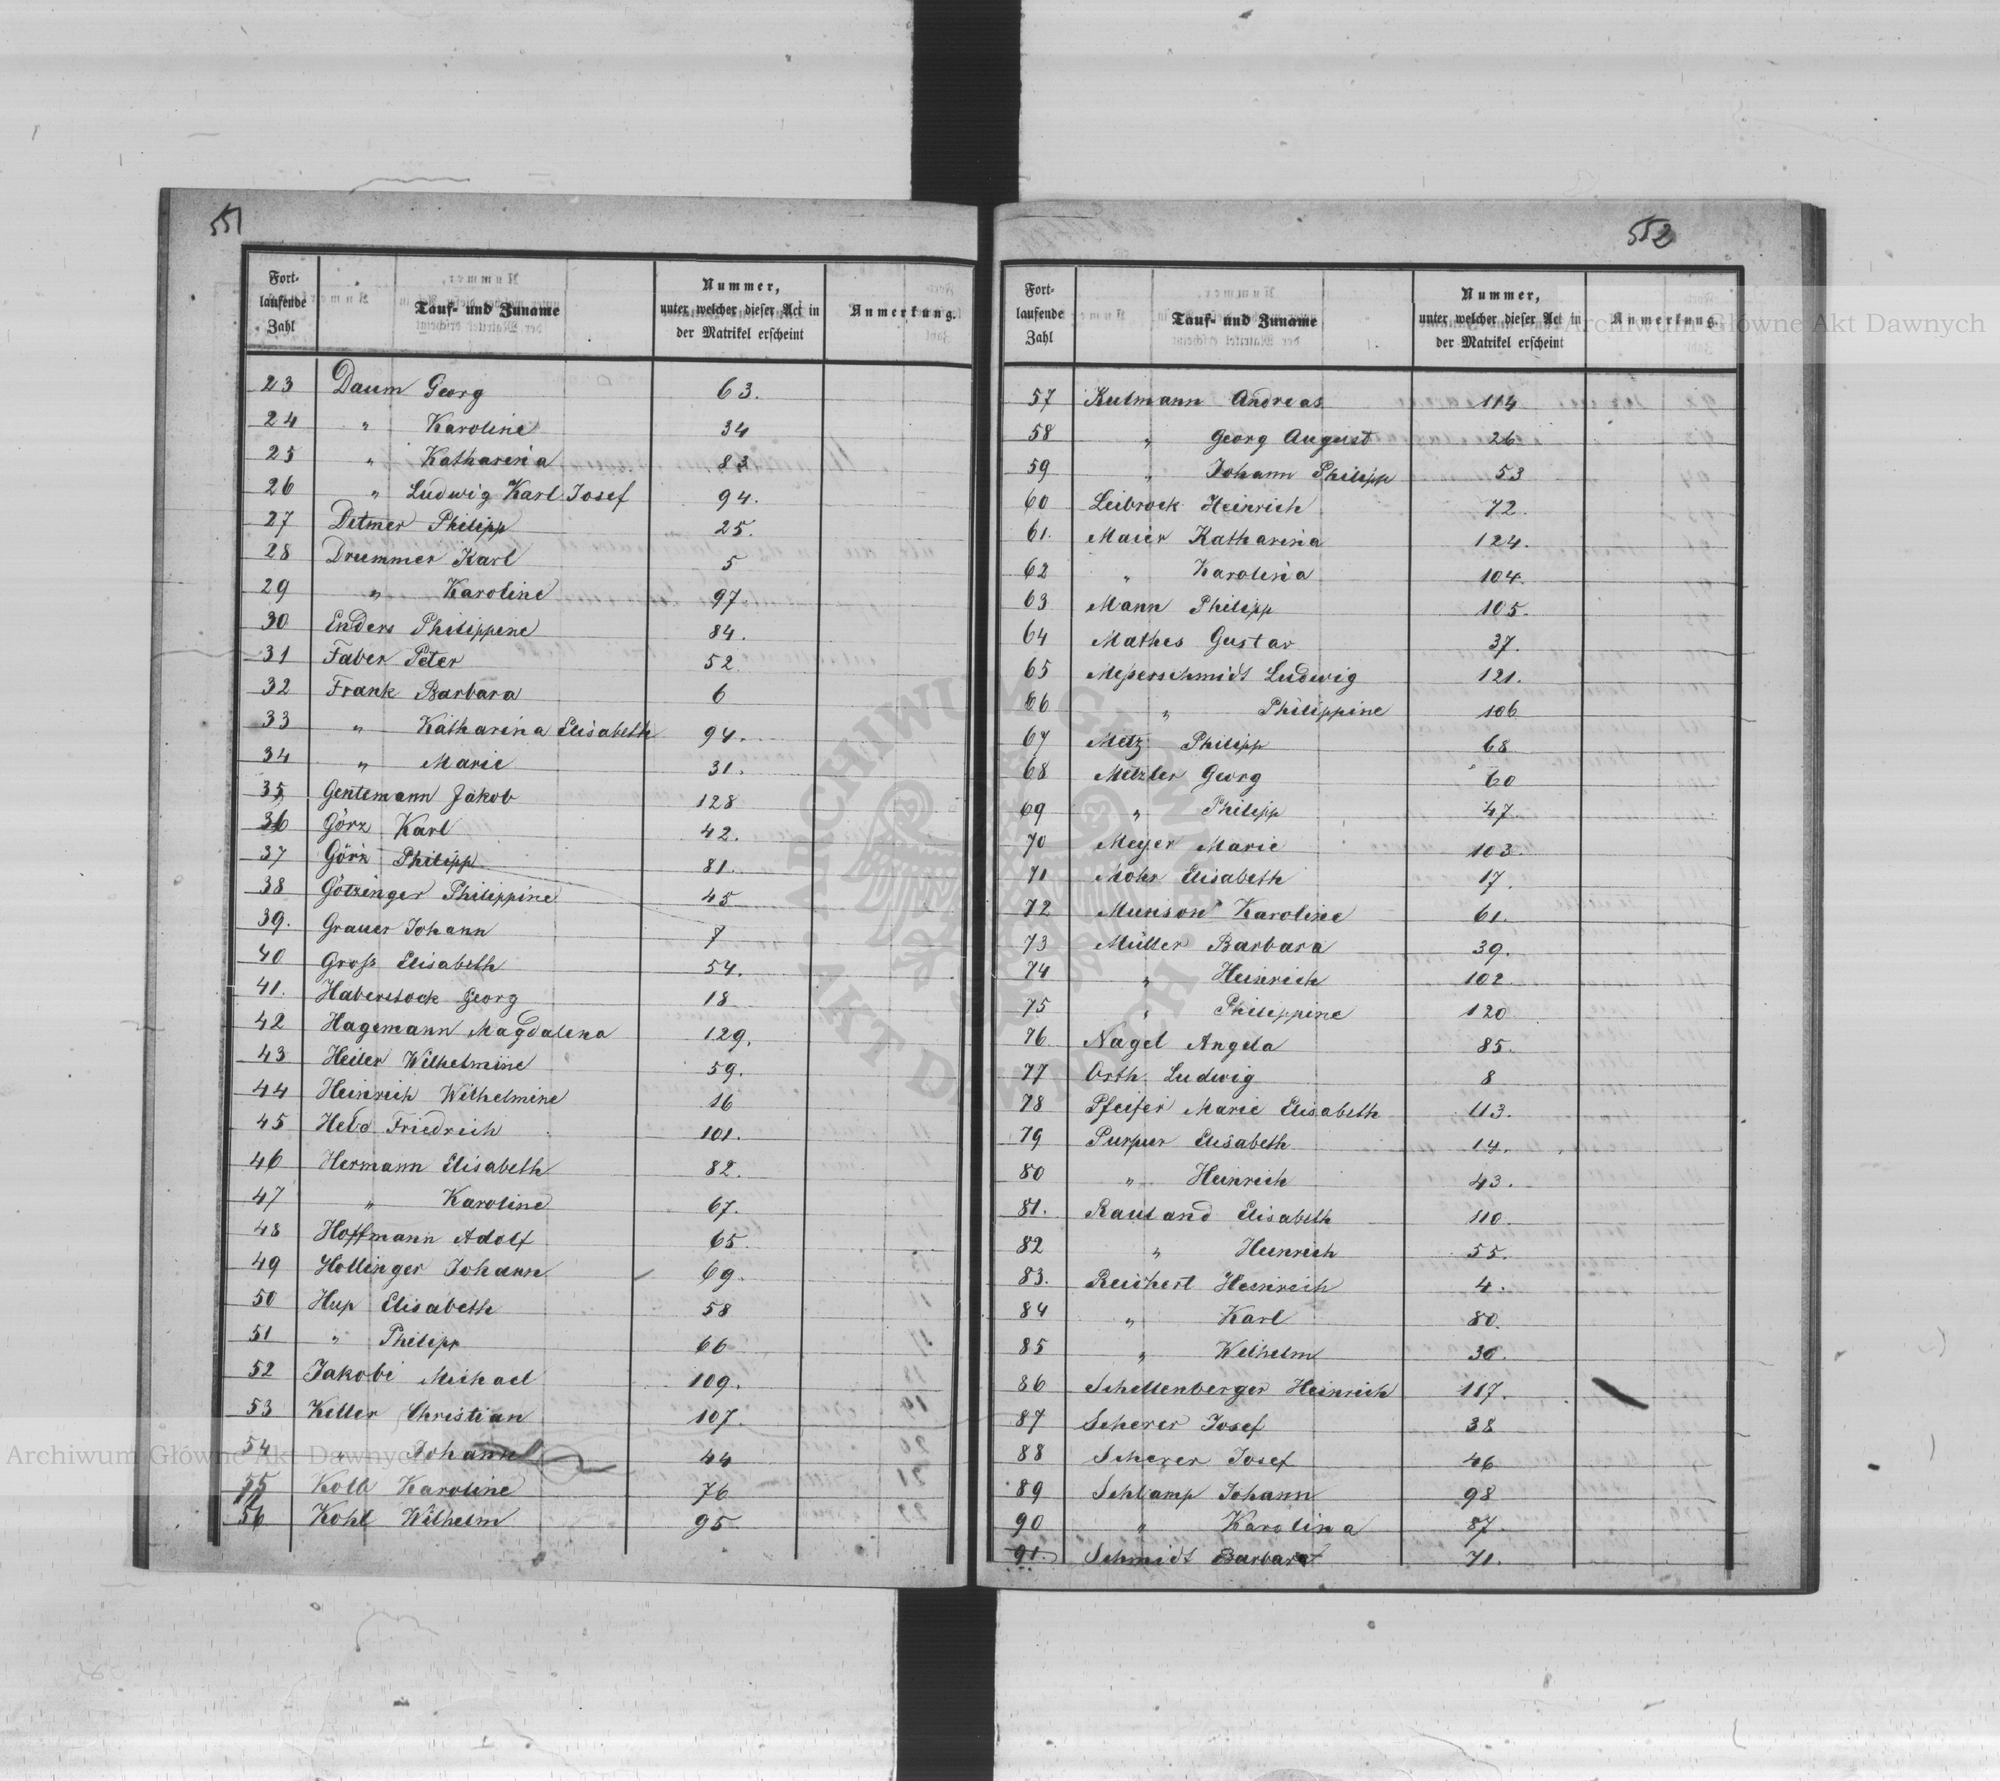 551
Fort-
laufende
Zahl
Tauf- und Zuname
Nummer,
unter welcher dieser Act in
der Matrikel erscheint
Anmerkung.
23 Daum Georg 63.
24 " Karoline 34
25 " Katharina 83
26 " Ludwig Karl Josef 94.
27 Detmer Philipp 25.
28 Drummer Karl 5
29 " Karoline 97.
30 Enders Philippine 84.
31 Faber Peter 52
32 Frank Barbara 6
33 " Katharina Elisabeth 94.
34 " Marie 31.
35 Gentemann Jakob 128
36 Görz Karl 42.
37 Görz Philipp 81.
38 Götzinger Philippine 45
39. Grauer Johann 7
40 Groß Elisabeth 54.
41. Haberstock Georg 18
42 Hagemann Magdalena 129.
43 Heiler Wilhelmine 59.
44 Heinrich Wilhelmine 16
45 Held Friedrich 101.
46 Hermann Elisabeth 82.
47 " Karoline 67.
48 Hoffmann Adolf 65
49 Hollinger Johann 69.
50 Huß Elisabeth 58
51 " Philipp 66
52 Jakobi Michael 109.
53 Keller Christian 107.
54 " Johann 44
55 Kolb Karoline 76
56 Kohl Wilhelm 95
552
Fort-
laufende
Zahl
Tauf- und Zuname
Nummer,
unter welcher dieser Act in
der Matrikel erscheint
Anmerkung.
57 Kulmann Andreas 114
58 " Georg August 26
59 " Johann Philipp 53
60 Leibrock Heinrich 72
61. Maier Katharina 124.
62 " Karolina 104.
63 Mann Philipp 105.
64 Mathes Gustav 37.
65 Meßerschmidt Ludwig 121.
66 " Philippine 106
67 Metz Philipp 68
68 Metzler Georg 60
69 " Philipp 47.
70 Meyer Marie 103.
71 Mohr Elisabeth 17.
72 Munson Karoline 61.
73 Müller Barbara 39.
74 " Heinrich 102
75 " Philippine 120
76 Nagel Angela 85.
77 Orth Ludwig 8
78 Pfeifer Marie Elisabeth 113.
79 Purpur Elisabeth 14.
80 " Heinrich 43.
81. Rauland Elisabeth 110.
82 " Heinrich 55.
83. Reichert Heinrich 4.
84 " Karl 80.
85 " Wilhelm 30.
86 Schellenberger Heinrich 117.
87 Scherer Josef 38
88 Scherer Josef 46
89 Schlamp Johann 98
90 " Karolina 87.
91. Schmidt Barbara 71.
Archiwum Główne Akt Dawnych
Archiwum Główne Akt Dawnych
ARCHIWUM GŁÓWNE
AKT DAWNYCH